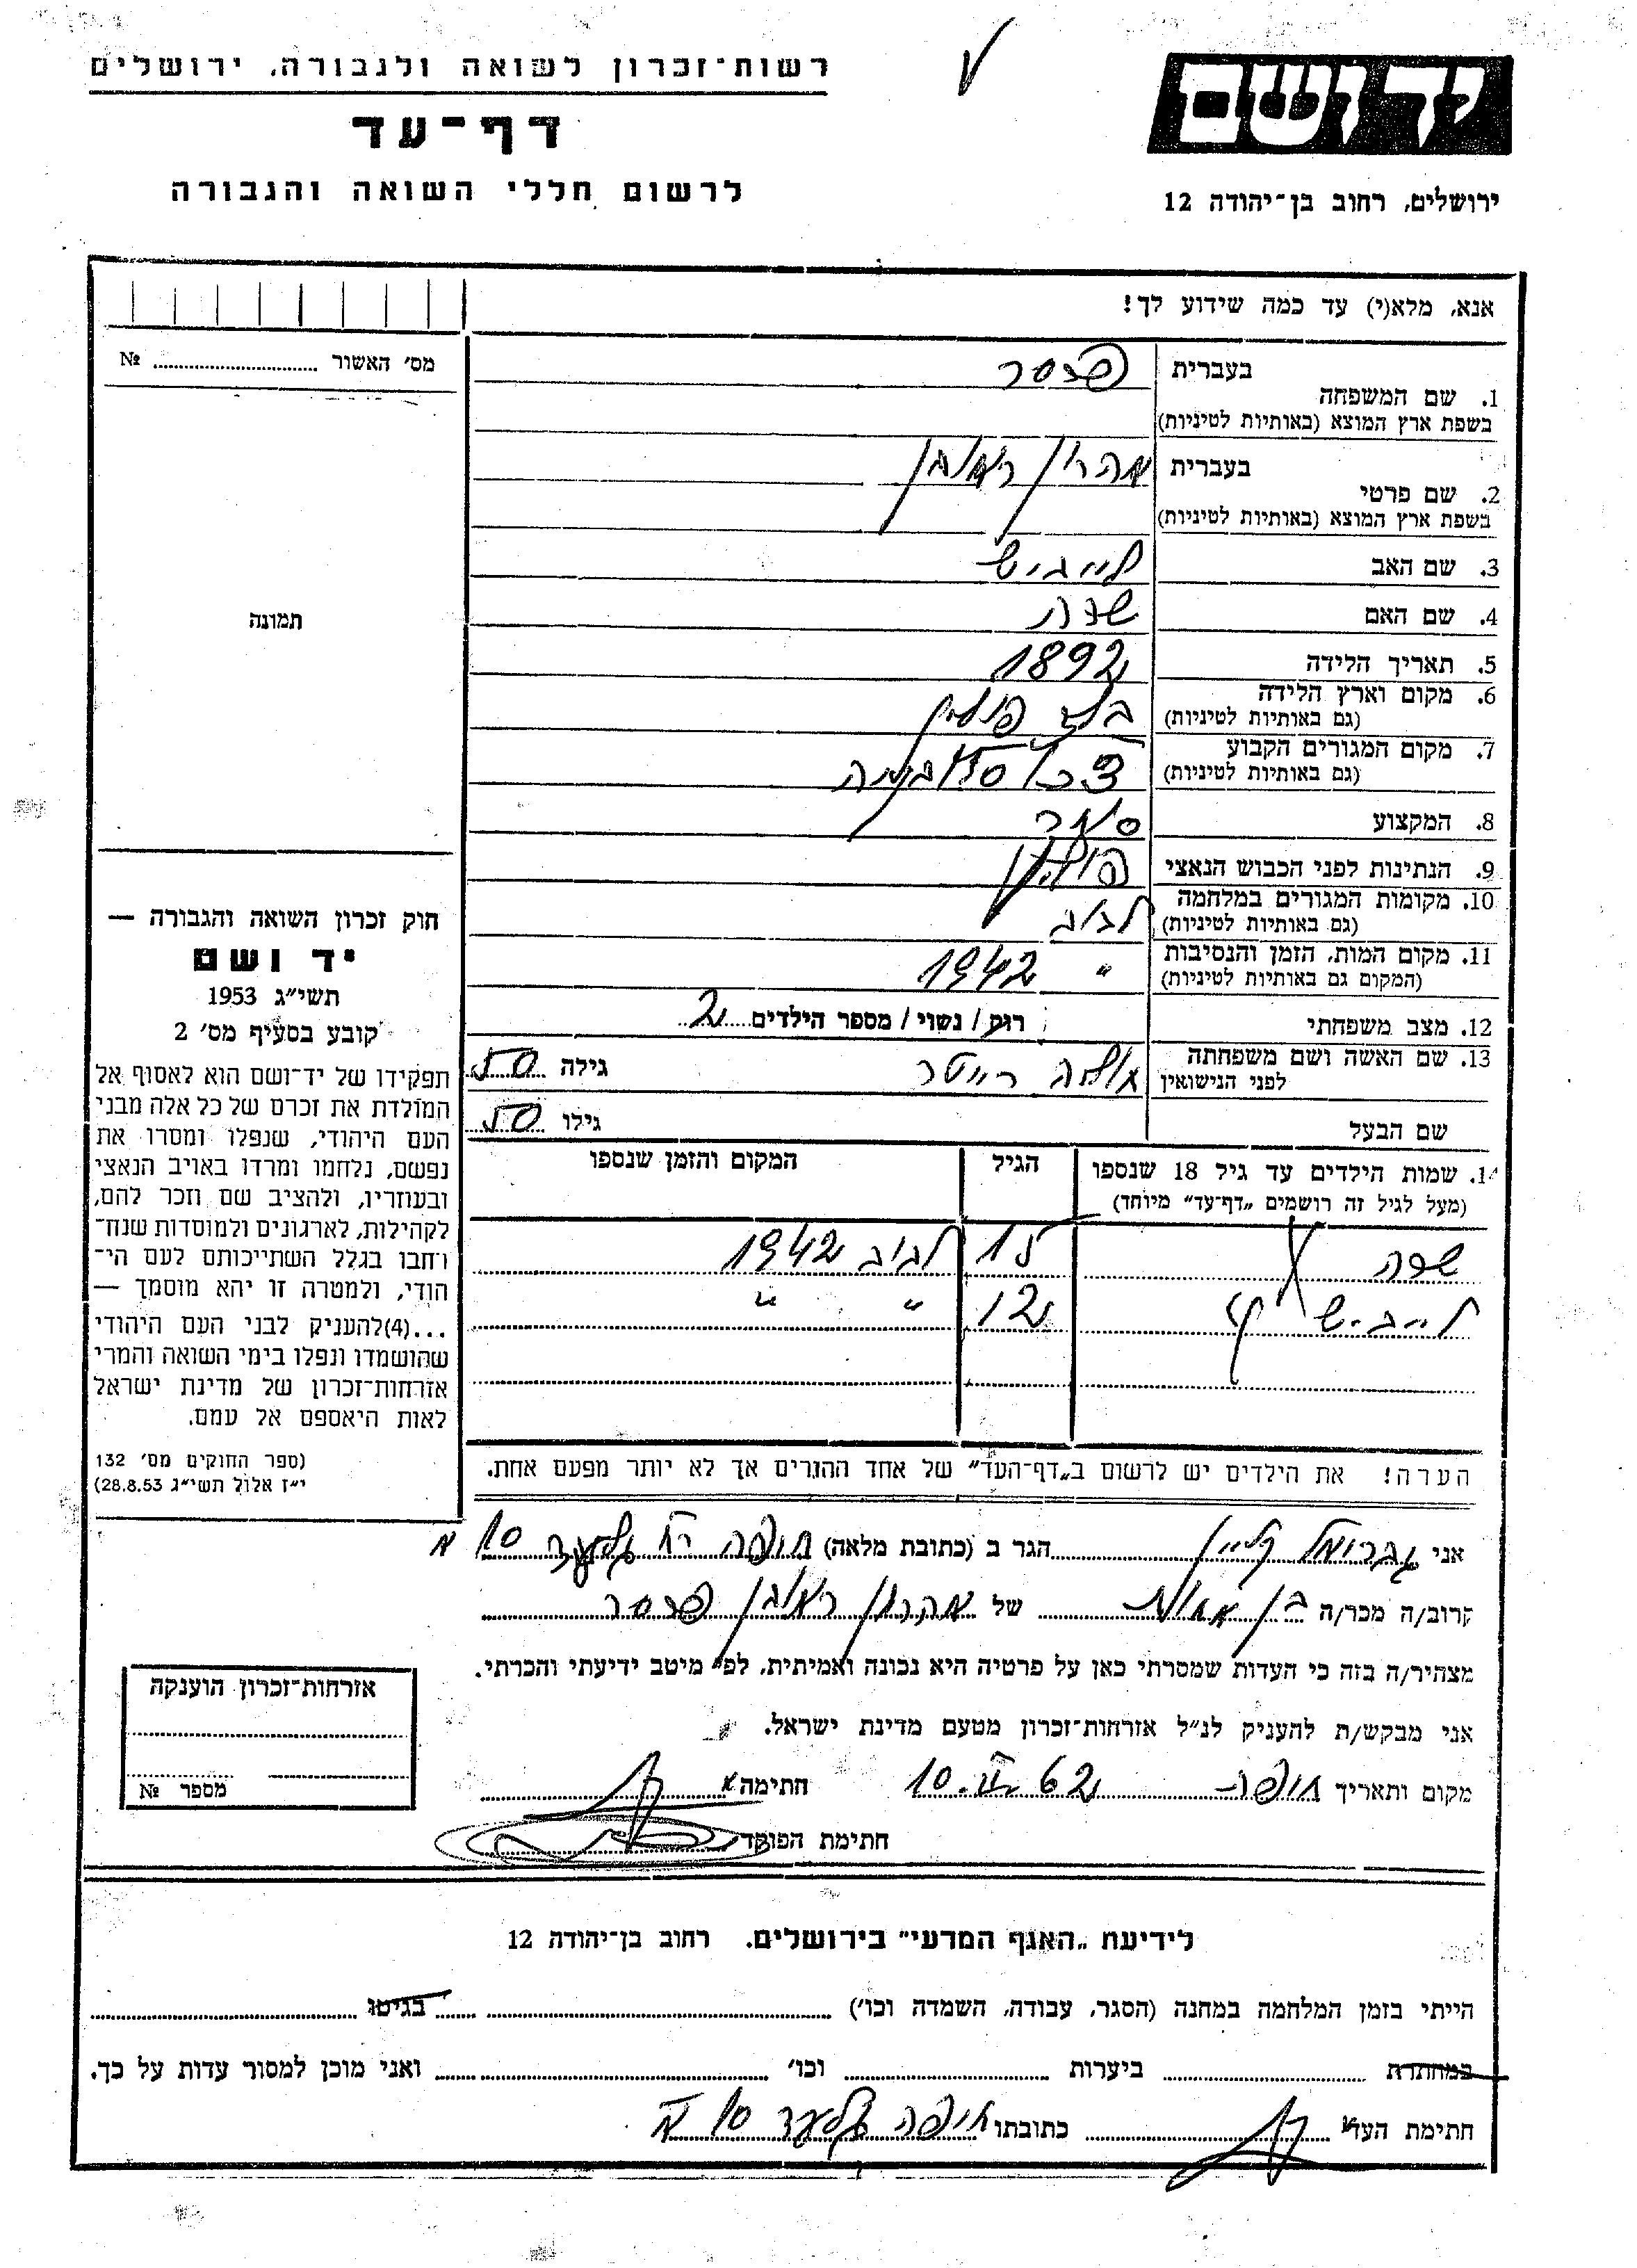 יד ושם
ירושלים, רחוב בן־יהודה 12
רשות־זכרון לשואה ולגבורה, ירושלים
דף־עד
לרשום חללי השואה והגבורה
אנא, מלא(י) עד כמה שידוע לך!
מס׳ האשור № 
1. שם המשפחה
בעברית
בשפת ארץ המוצא (באותיות לטיניות)
2. שם פרטי
בעברית אהרון ראובן
בשפת ארץ המוצא (באותיות לטיניות)
3. שם האב לייביש
4. שם האם שרה
5. תאריך הלידה 1892
6. מקום וארץ הלידה פולין
(גם באותיות לטיניות)
7. מקום המגורים הקבוע
(גם באותיות לטיניות)
8. המקצוע סוחר
9. הנתינות לפני הכבוש הנאצי פולין
10. מקומות המגורים במלחמה לבוב
(גם באותיות לטיניות)
11. מקום המות, הזמן והנסיבות ״ 1942
(המקום גם באותיות לטיניות)
12. מצב משפחתי רוק / נשוי / מספר הילדים 2
13. שם האשה ושם משפחתה
לפני הנישואין רייטר גילה 50
שם הבעל גילו 50
14. שמות הילדים עד גיל 18 שנספו הגיל המקום והזמן שנספו
(מעל לגיל זה רושמים „דף־עד״ מיוחד)
שרה 15 לבוב 1942
לייביש 12 ״ ״
הערה! את הילדים יש לרשום ב„דף־העד״ של אחד ההורים אך לא יותר מפעם אחת.
תמונה
חוק זכרון השואה והגבורה —
יד ושם
תשי״ג 1953
קובע בסעיף מס׳ 2
תפקידו של יד־ושם הוא לאסוף אל
המולדת את זכרם של כל אלה מבני
העם היהודי, שנפלו ומסרו את
נפשם, נלחמו ומרדו באויב הנאצי
ובעוזריו, ולהציב שם וזכר להם,
לקהילות, לארגונים ולמוסדות שנח־
רחבו בגלל השתייכותם לעם הי־
הודי, ולמטרה זו יהא מוסמך —
...(4) להעניק לבני העם היהודי
שהושמדו ונפלו בימי השואה והמרי
אזרחות־זכרון של מדינת ישראל
לאות היאספם אל עמם.
(ספר החוקים מס׳ 132
י״ז אלול תשי״ג 28.8.53)
אני קליין הגר ב (כתובת מלאה) חיפה רח 10 א
קרוב/ה מכר/ה בן אחות של אהרון ראובן
מצהיר/ה בזה כי העדות שמסרתי כאן על פרטיה היא נכונה ואמיתית, לפי מיטב ידיעתי והכרתי.
אני מבקש/ת להעניק לנ״ל אזרחות־זכרון מטעם מדינת ישראל.
מקום ותאריך חיפה 62 10. חתימה
חתימת הפוקד
אזרחות־זכרון הוענקה
מספר №
לידיעת „האגף המדעי״ בירושלים. רחוב בן־יהודה 12
הייתי בזמן המלחמה במחנה (הסגר, עבודה, השמדה וכו׳) בגיטו
במחתרת ביערות וכו׳ ואני מוכן למסור עדות על כך.
חתימת העד כתובתו חיפה 10 א